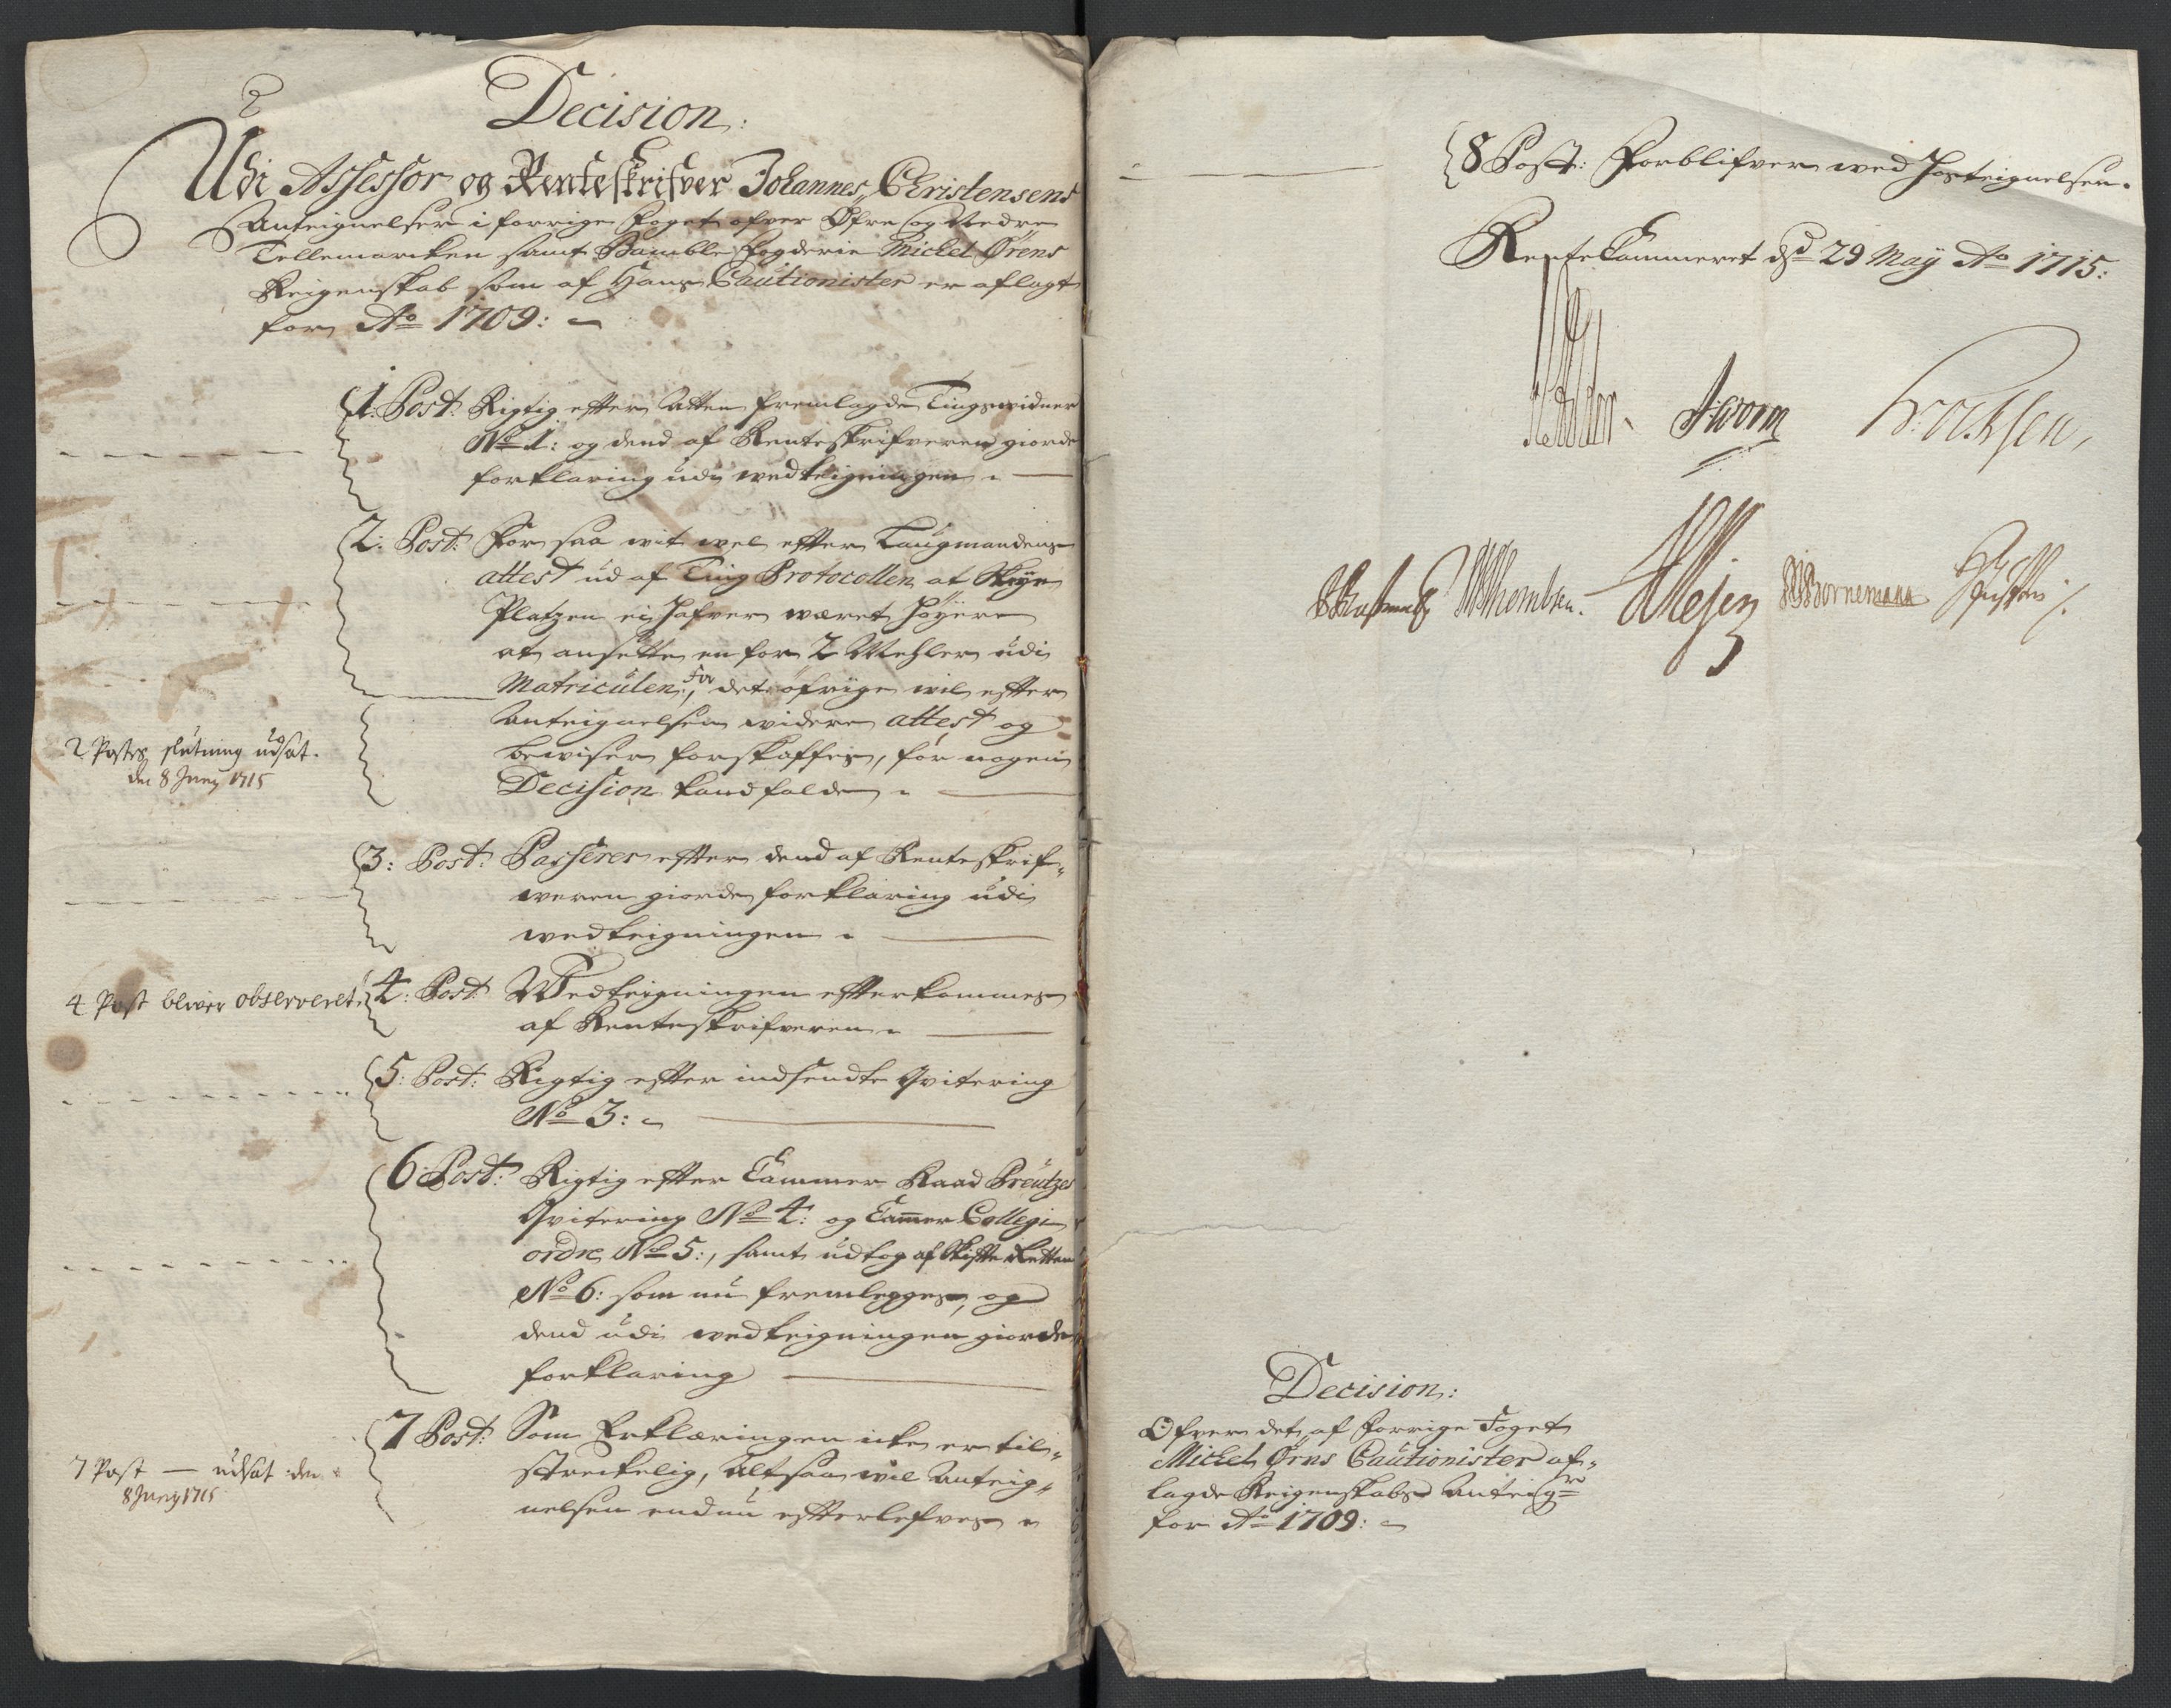 Decision:
Udi Assessor og Renteskrifver Johannes Christensens
Anteignelser i forrige Foget ofver Øfre og Nedre
Tellemarcken samt Bamble Fogderie Michel Ørens
Reigenskab som af Hans Cautionister er aflagt
for Ao 1709:
1: Post: Rigtig efter Atten fremlagde Tingsvidner
No 1: og dend af Renteskrifveren giorde
forklaring udi vedteigningen
2: Post: For saa vit vel efter Laugmandens
attest ud af Ting Protocollen at
Platzen ei hafver været höyere
at ansette en for 2 Mehler udi
Matriculen, for det öfrige vil efter
Anteignelsen videre attest og
beviser forskaffes, för nogen
Decision kand falde
2 Postes slutning udsat
den 8 Juny 1715
3: Post: Passerer efter dend af Renteskrif-
veren giorde forklaring udi
vedteigningen
4: Post: Vedteigningen efterkommes
af Renteskrifveren
4 Post blever observeret
5: Post: Rigtig efter indsendte Qvitering
No 3:
6: Post: Rigtig efter Cammer Raad Kreutzes
Qvitering No 4: og Camer Collegi
ordre No 5:, samt udtog af Skifte Retten
No 6: som nu fremlegges, og
dend udi vedteigningen giorde
forklaring
7 Post: Som Erklæringen icke er til-
streckelig, Altsaa vil Anteig-
nelsen endnu efterlefves
7 Post — udsat den
8 Juny 1715
8 Post: Forblifver ved Hosteignelsen.
RenteCammeret d 29 Maÿ Ao 1715:
Aworm
JWThombsen.
Bornemann
Decision:
Ofver det af forrige Foget
Michel Ørns Cautionister af-
lagde Reigenskabs Anteigr
for Ao 1709: